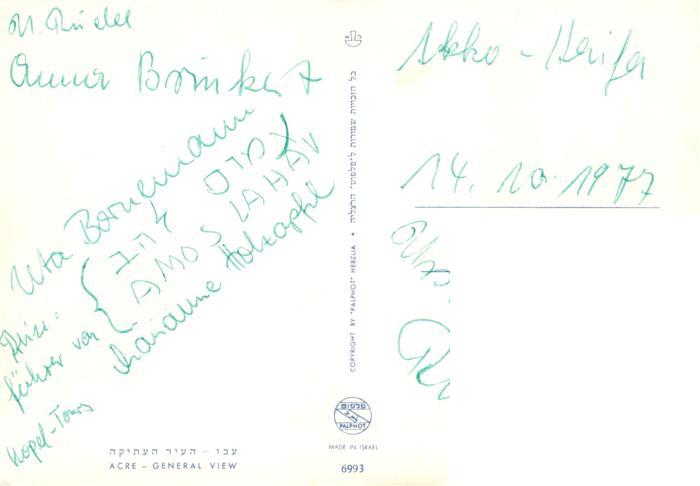 Anna Brinkert
Uta Bornemann
עמוס להב
AMOS LAHAV
Reise=
führer von
Kopel-Tours
Marianne Holzapfel
עכו – העיר העתיקה
ACRE – GENERAL VIEW
כל הזכויות שמורות ל"פלפוט" הרצליה • COPYRIGHT BY "PALPHOT" HERZLIA
פלפוט
PALPHOT
MADE IN ISRAEL
6993
Akko - Haifa
14. 10. 1977